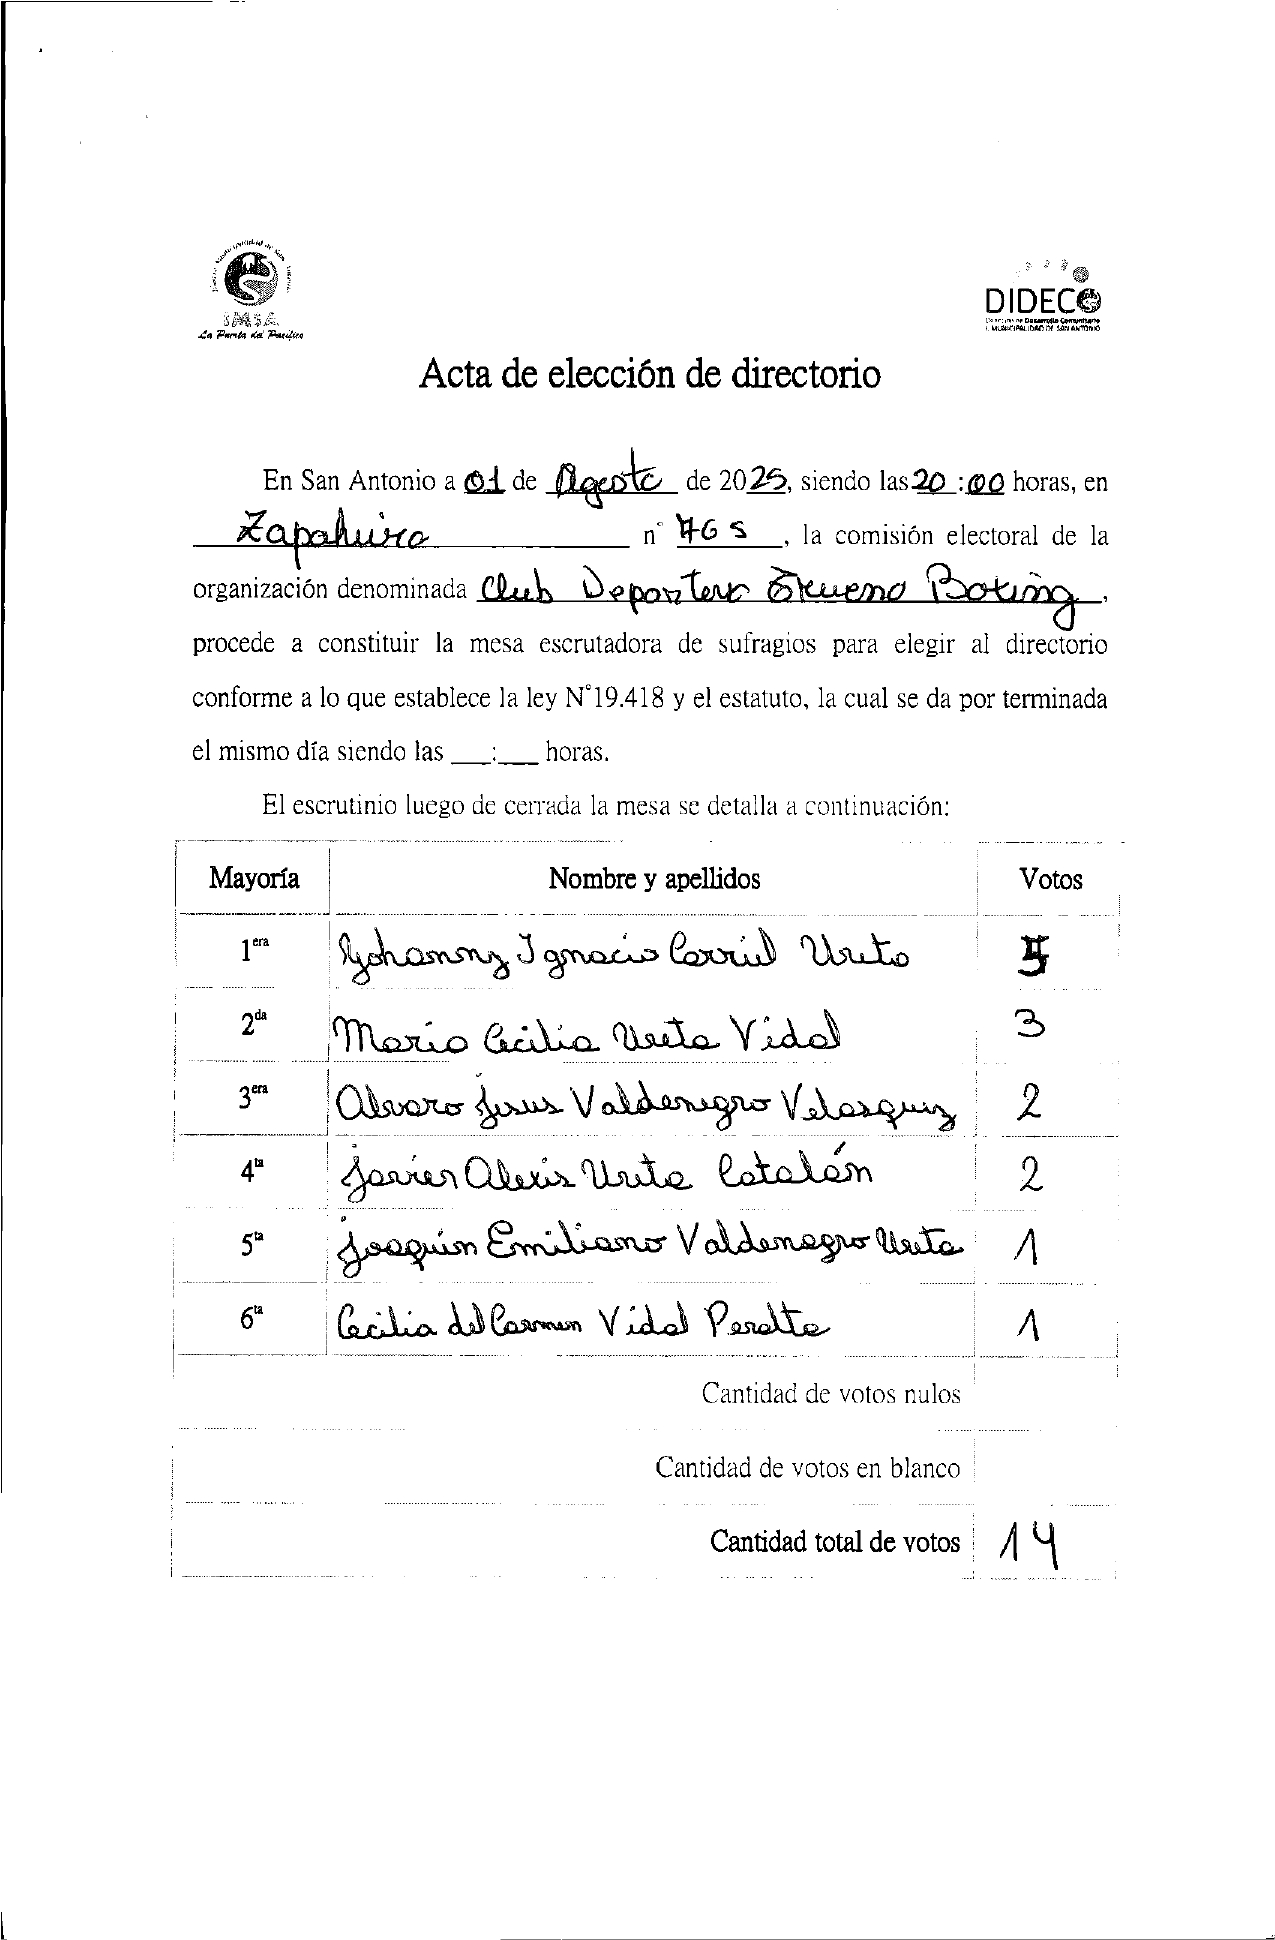 IMSA
La Puerta del Pacífico
DIDECO
Dirección de Desarrollo Comunitario
I. MUNICIPALIDAD DE SAN ANTONIO
Acta de elección de directorio
En San Antonio a 01 de Agosto de 2025, siendo las 20:00 horas, en
Zapahuira n° 765, la comisión electoral de la
organización denominada Club Deportivo Boxing,
procede a constituir la mesa escrutadora de sufragios para elegir al directorio
conforme a lo que establece la ley N°19.418 y el estatuto, la cual se da por terminada
el mismo día siendo las __:__ horas.
El escrutinio luego de cerrada la mesa se detalla a continuación:
Mayoría Nombre y apellidos Votos
1era Ignacio Carril Ureta 5
2da Maria Cecilia Ureta Vidal 3
3era Alvaro Jesus Valdenegro Velasquez 2
4ta Javier Alexis Ureta Catalán 2
5ta Joaquin Emiliano Valdenegro Ureta 1
6ta Cecilia del Carmen Vidal Peralta 1
Cantidad de votos nulos
Cantidad de votos en blanco
Cantidad total de votos 14